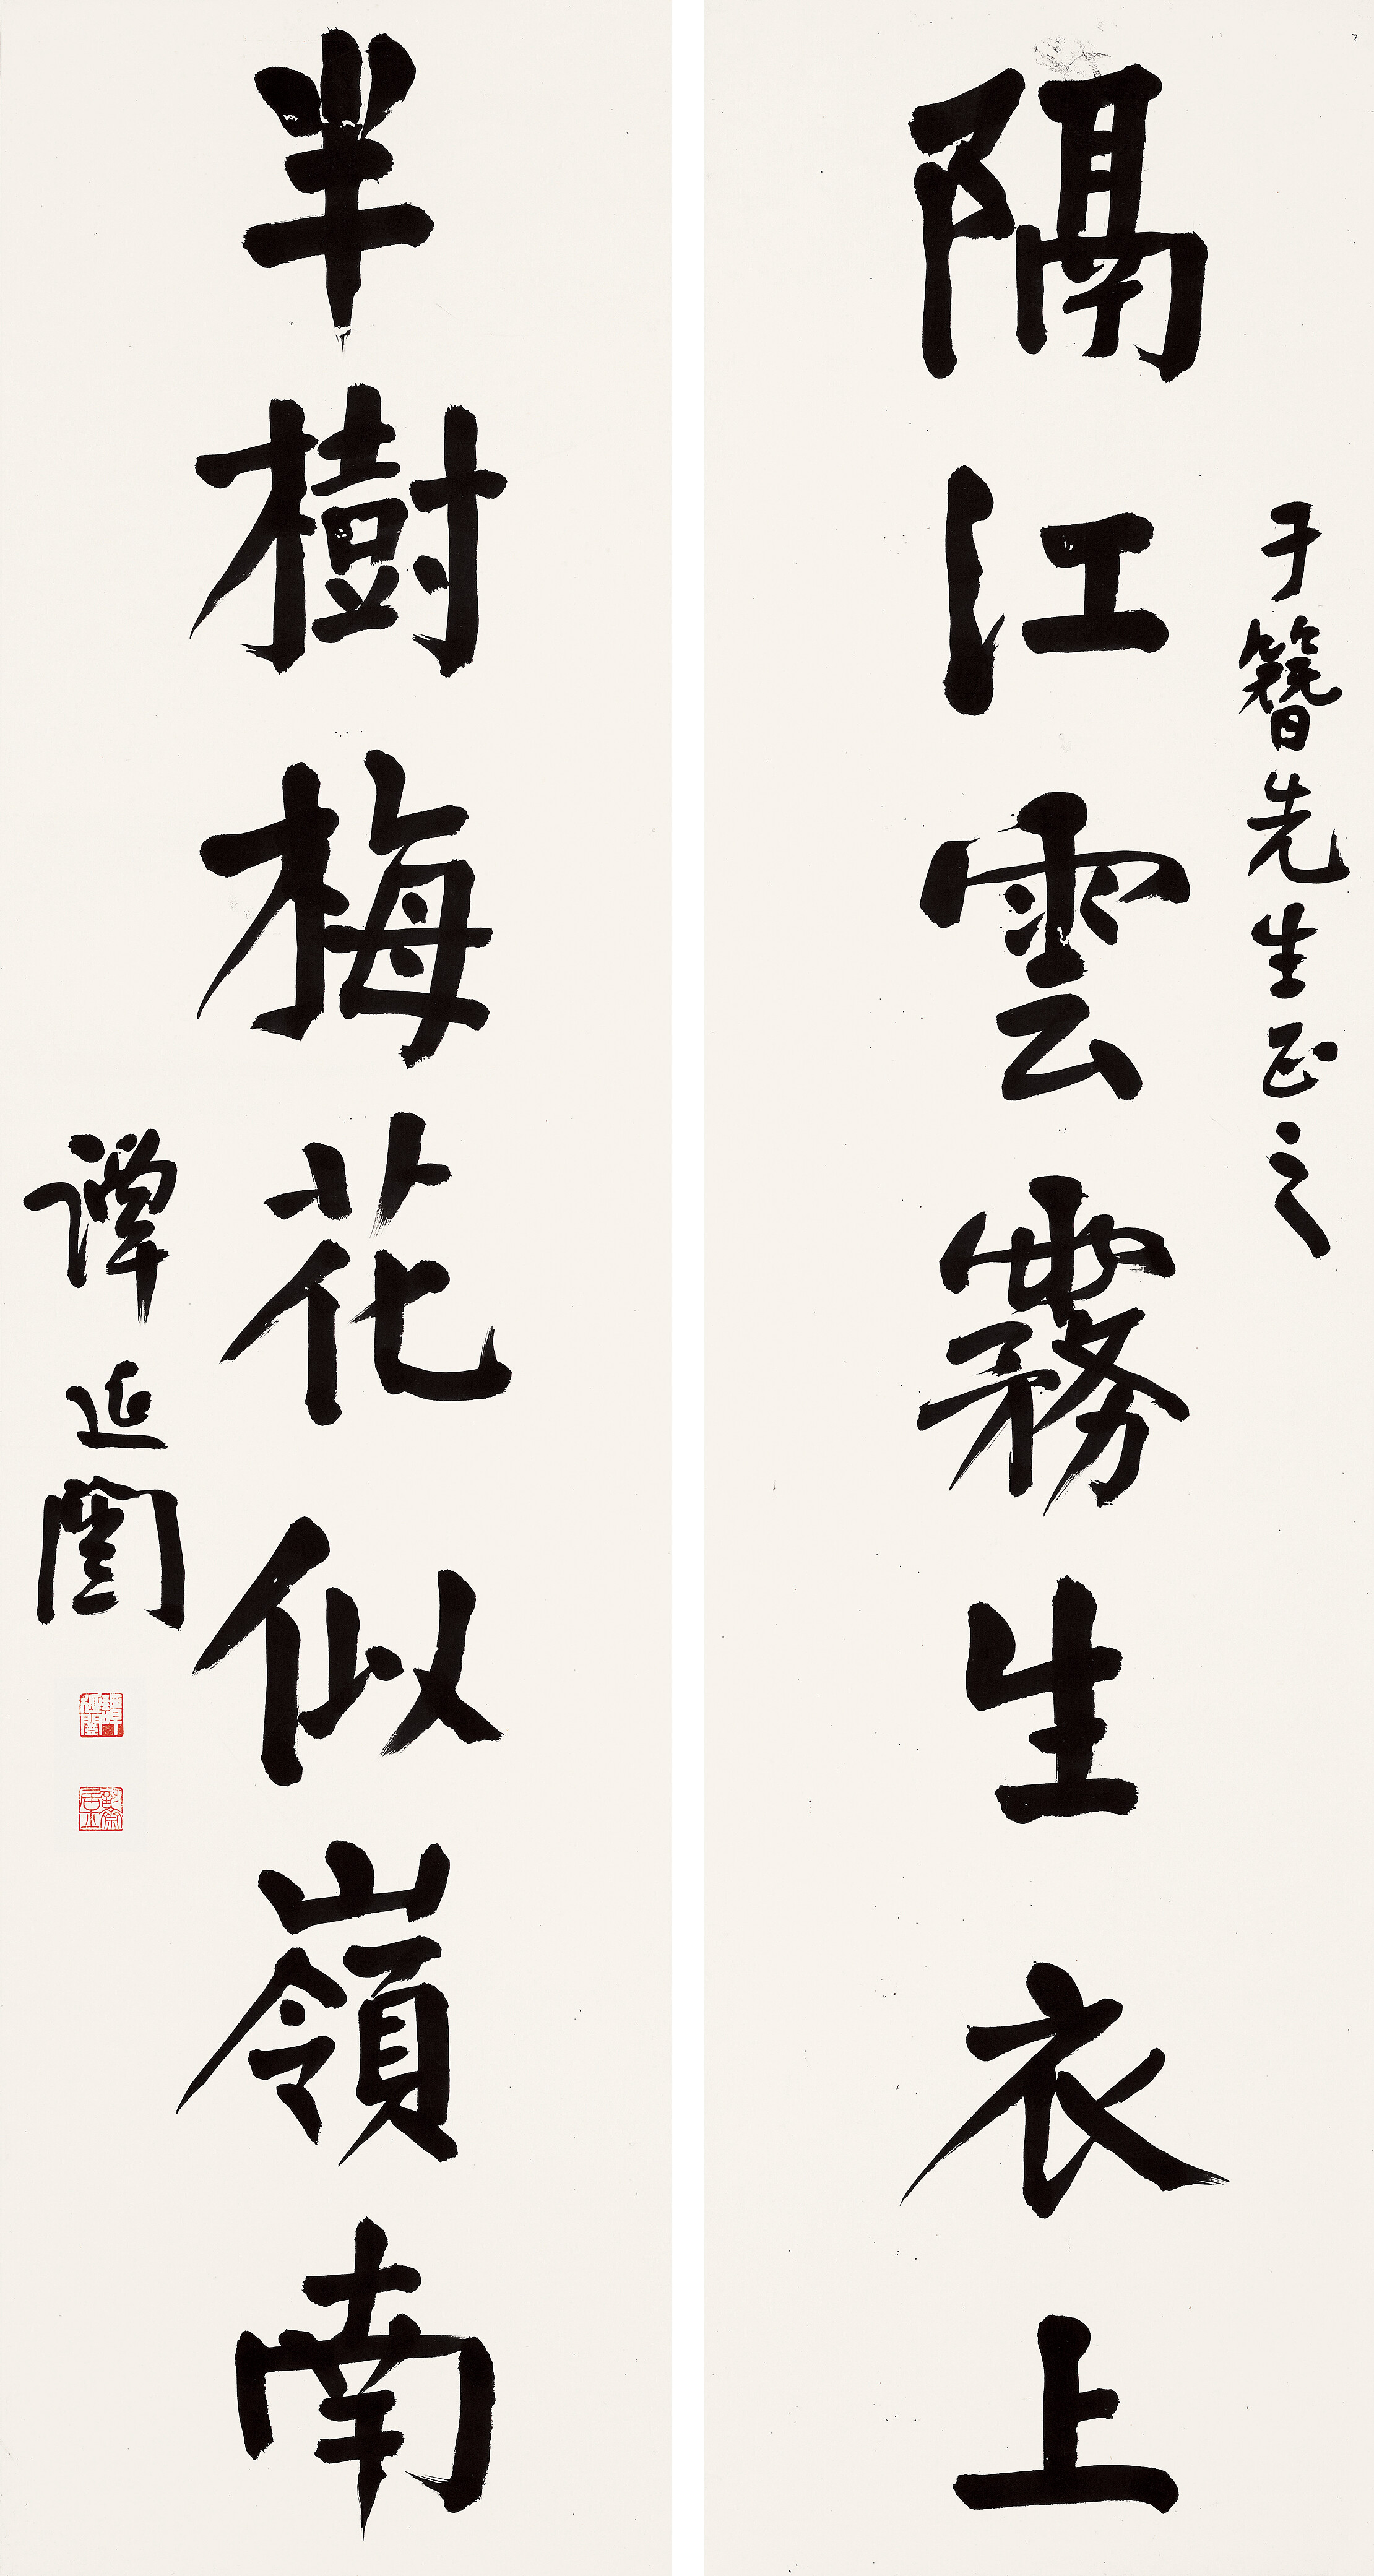 于簪先生正之
隔江雲霧生衣上
半樹梅花似嶺南
譚延闓
譚延闓